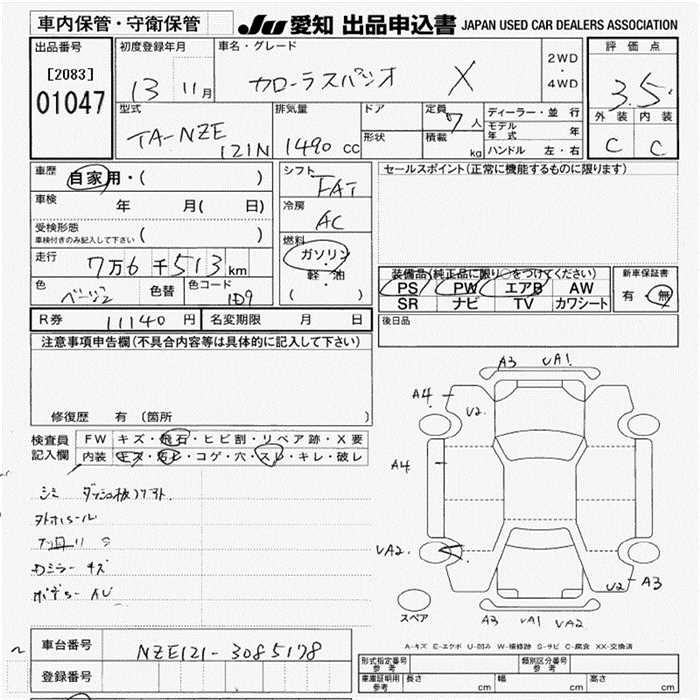 車内保管・守衛保管 JU 愛知 出品申込書 JAPAN USED CAR DEALERS ASSOCIATION
出品番号
[2083]
01047
初度登録年月
13 11月
車名・グレード
カローラスパシオ X
2WD
・
4WD
評価点
3.5
外装 内装
C C
型式
TA-NZE
121N
排気量
1490 cc
ドア
形状
定員 7 人
積載 kg
ディーラー・並行
モデル年式 年
ハンドル 左・右
車歴 自家用・( )
車検 年 月( 日)
受検形態
車検付きのみ記入して下さい ( )
走行 7万6千513km
色 ベージュ 色替 色コード 1D9
シフト
FAT
冷房
AC
燃料
ガソリン
・
軽・油
( )
セールスポイント(正常に機能するものに限ります)
装備品(純正品に限り○をつけてください)
PS PW エアB AW
SR ナビ TV カワシート
新車保証書
有・無
R券 11140 円 名変期限 月 日
後日品
注意事項申告欄(不具合内容等は具体的に記入して下さい)
修復歴 有 (箇所 )
検査員
記入欄
FW キズ・飛石・ヒビ割・リペア跡・X要
内装 キズ・汚レ・コゲ・穴・スレ・キレ・破レ
シミ
Dミラーキズ
A3 UA1
A4 U2
A4
UA2
U2 A3
スペア
A3 UA1 UA2
A-キズ E-エクボ U-凹み W-補修跡 S-サビ C-腐食 XX-交換済
車台番号 NZE121-3085178
登録番号
型式指定番号
参考
類別区分番号
参考
車庫証明用
参考
長さ cm 幅 cm 高さ cm